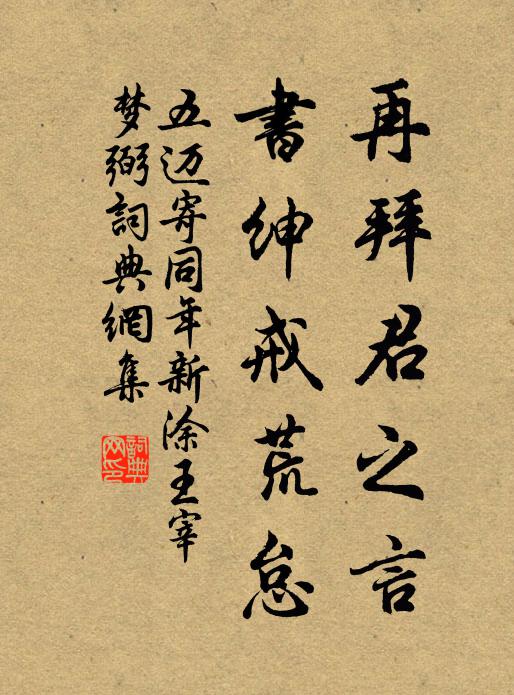 再拜君之言
書紳戒荒怠
五迈寄同年新涂王宰
梦弼詞典網集
詞典网印